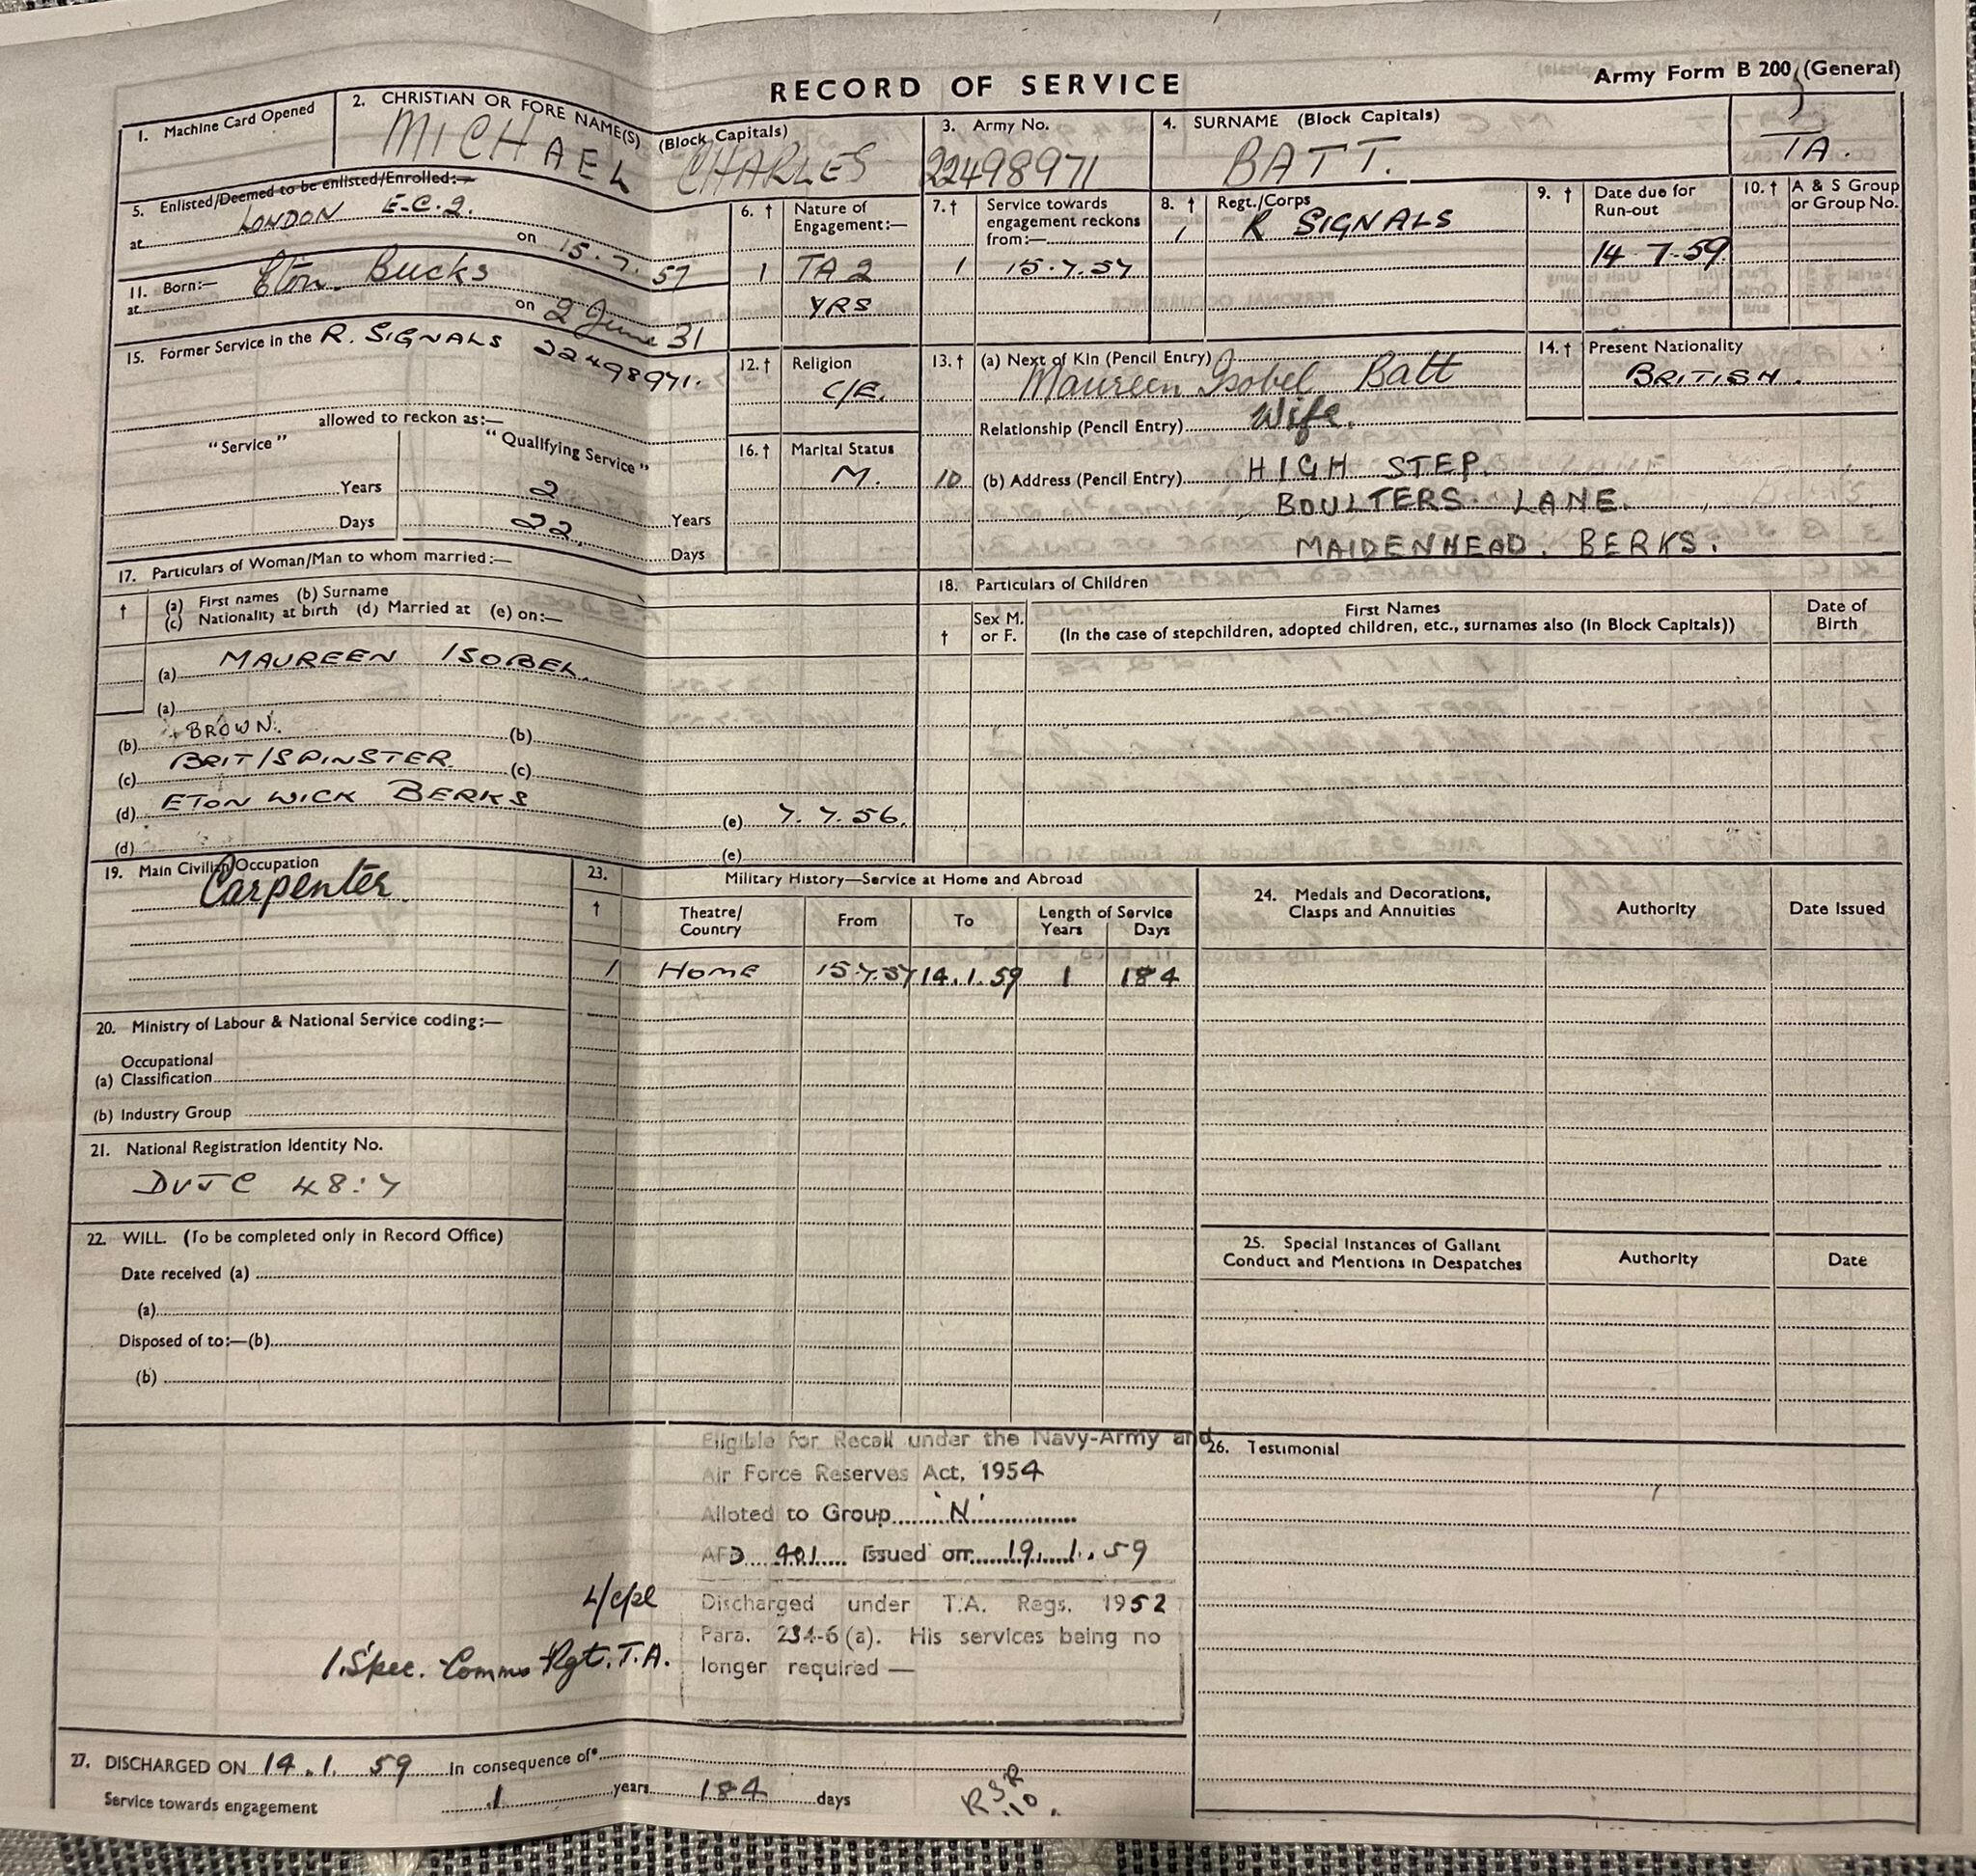 RECORD OF SERVICE
Army Form B 200 (General)
1. Machine Card Opened
2. CHRISTIAN OR FORE NAME(S) (Block Capitals)
MICHAEL CHARLES
3. Army No.
22498971
4. SURNAME (Block Capitals)
BATT.
TA.
5. Enlisted/Deemed to be enlisted/Enrolled:—
at LONDON E.C.2. on 15.7.57
6. † Nature of Engagement:—
1 TA 2
YRS
7. † Service towards engagement reckons from:—
1 15.7.57
8. † Regt./Corps
1 R SIGNALS
9. † Date due for Run-out
14-7-59
10. † A & S Group or Group No.
11. Born:—
at Eton. Bucks on 2 June 31
12. † Religion
C/E.
13. † (a) Next of Kin (Pencil Entry)
Maureen Isobel Batt
Relationship (Pencil Entry) Wife.
10 (b) Address (Pencil Entry) HIGH STEP.
BOULTERS LANE.
MAIDENHEAD. BERKS.
14. † Present Nationality
BRITISH.
15. Former Service in the R. SIGNALS 22498971.
allowed to reckon as:—
"Service" "Qualifying Service"
Years 2 Years
Days 22. Days
16. † Marital Status
M.
17. Particulars of Woman/Man to whom married:—
† (a) First names (b) Surname
(c) Nationality at birth (d) Married at (e) on:—
(a) MAUREEN ISOBEL.
(a)
(b) BROWN. (b)
(c) BRIT/SPINSTER (c)
(d) ETON WICK BERKS (e) 7.7.56.
(d) (e)
18. Particulars of Children
† Sex M. or F.
First Names
(In the case of stepchildren, adopted children, etc., surnames also (In Block Capitals))
Date of Birth
19. Main Civilian Occupation
Carpenter.
20. Ministry of Labour & National Service coding:—
Occupational
(a) Classification
(b) Industry Group
21. National Registration Identity No.
DVJC 48:7
22. WILL. (To be completed only in Record Office)
Date received (a)
(a)
Disposed of to:—(b)
(b)
23. † Military History—Service at Home and Abroad
Theatre/Country From To Length of Service
Years Days
1 Home 15.7.57 14.1.59 1 184
24. Medals and Decorations, Clasps and Annuities
Authority
Date Issued
25. Special Instances of Gallant Conduct and Mentions in Despatches
Authority
Date
Eligible for Recall under the Navy-Army and
Air Force Reserves Act, 1954
Alloted to Group 'N'
AFD 401 Issued on 19.1.59
L/Cpl
1. Spec. Comms Rgt. T.A.
Discharged under T.A. Regs. 1952
Para. 234-6(a). His services being no
longer required —
26. Testimonial
27. DISCHARGED ON 14.1.59 In consequence of*
Service towards engagement 1 years 184 days